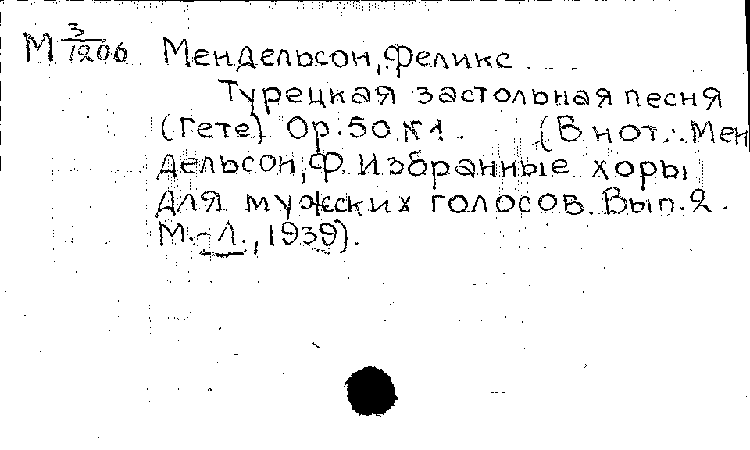 М 3/1206 Мендельсон, Феликс
Турецкая застольная песня
(Гете) Op. 50 №1. (В нот.: Мен
дельсон, Ф. Избранные хоры
для мужских голосов. Вып. 2.
М.-Л., 1939).